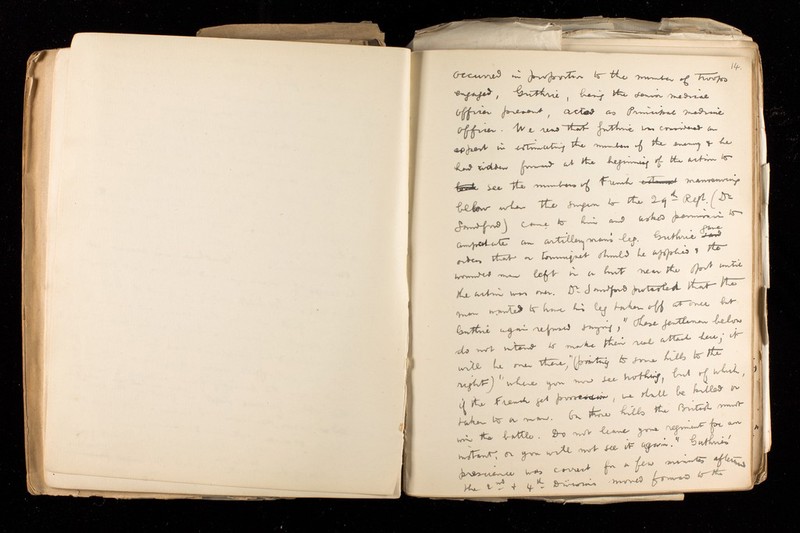 14.
occurred in proportion to the number of troops
engaged, Guthrie, being the senior medical
officer present, acted as Principal medical
officer. We read that Guthrie was considered an
expert in estimating the numbers of the enemy & he
had ridden forward at the beginning of the action to
see the numbers of French manoeuvring
below when the surgeon to the 29th Regt. (Dr
Sandford) came to him and asked permission to
amputate an artilleryman's leg. Guthrie gave
orders that a tourniquet should be applied & the
wounded man left in a hut near the spot until
the action was over. Dr Sandford protested that the
man wanted to have his leg taken off at once but
Guthrie again refused saying, "These gentlemen below
do not intend to make their real attack here; it
will be over there," (pointing to some hills to the
right) "where you now see nothing, but of which,
if the French get possession, we shall be killed or
taken to a man. On those hills the British must
win the battle. Do not leave your regiment for an
instant, or you will not see it again." Guthries'
prescience was correct for a few minutes afterwards
the 2nd & 4th Divisions moved forward to the